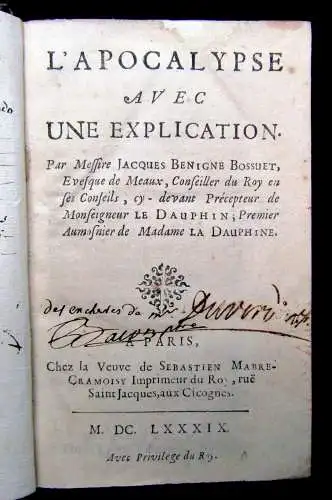 L'APOCALYPSE
AVEC
UNE EXPLICATION.
Par Messire JACQUES BENIGNE BOSSUET,
Evesque de Meaux, Conseiller du Roy en
ses Conseils, cy-devant Précepteur de
Monseigneur LE DAUPHIN, Premier
Aumosnier de Madame LA DAUPHINE.
des
A PARIS,
Chez la Veuve de SEBASTIEN MABRE-
CRAMOISY Imprimeur du Roy, ruë
Saint Jacques, aux Cicognes.
M. DC. LXXXIX.
Avec Privilege du Roy.